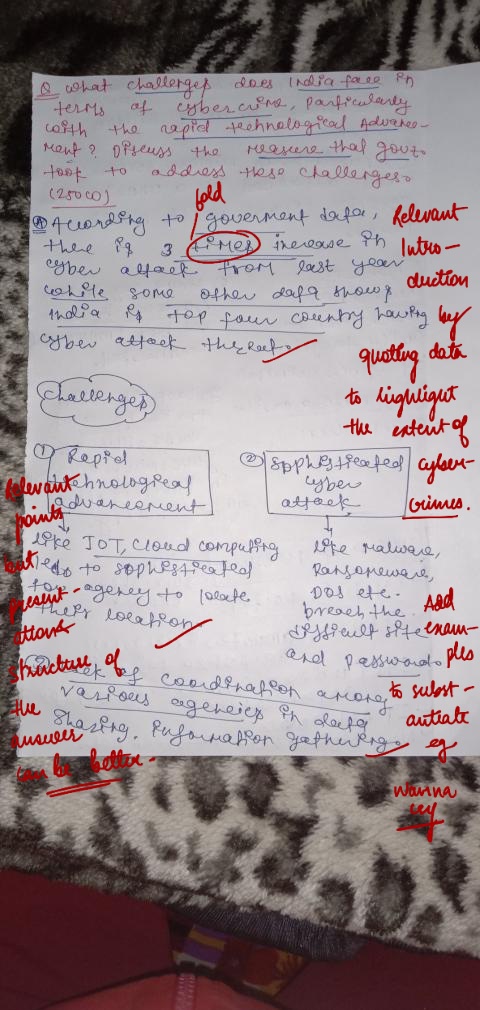 Q what challenges does India face in
terms of cyber crime, Particularly
with the rapid technological Advance-
ment? Discuss the measure that govt.
took to address these challenges.
(250
fold
Ⓐ According to goverment data,
there is 3 times increase in
cyber attack from last year
while some other data shows
India is top four country having
cyber attack threat.
Relevant
Intro-
duction
by
quoting data
to highlight
the extent of
cyber-
crimes.
Challenges
① Rapid
technological
advancement
② Sophisticated
cyber
attack
like IOT, Cloud computing
led to sophisticated
for agency to locate
their location
like malware,
Ransomeware,
DOS etc.
breach the
difficult site
and password.
③ Lack of coordination among
various agencies in data
Sharing. Information gathering.
Relevant
points
but
present-
ation
structure of
the
answer
can be better.
Add
exam-
ples
to subst-
antiate
eg
wanna
cry